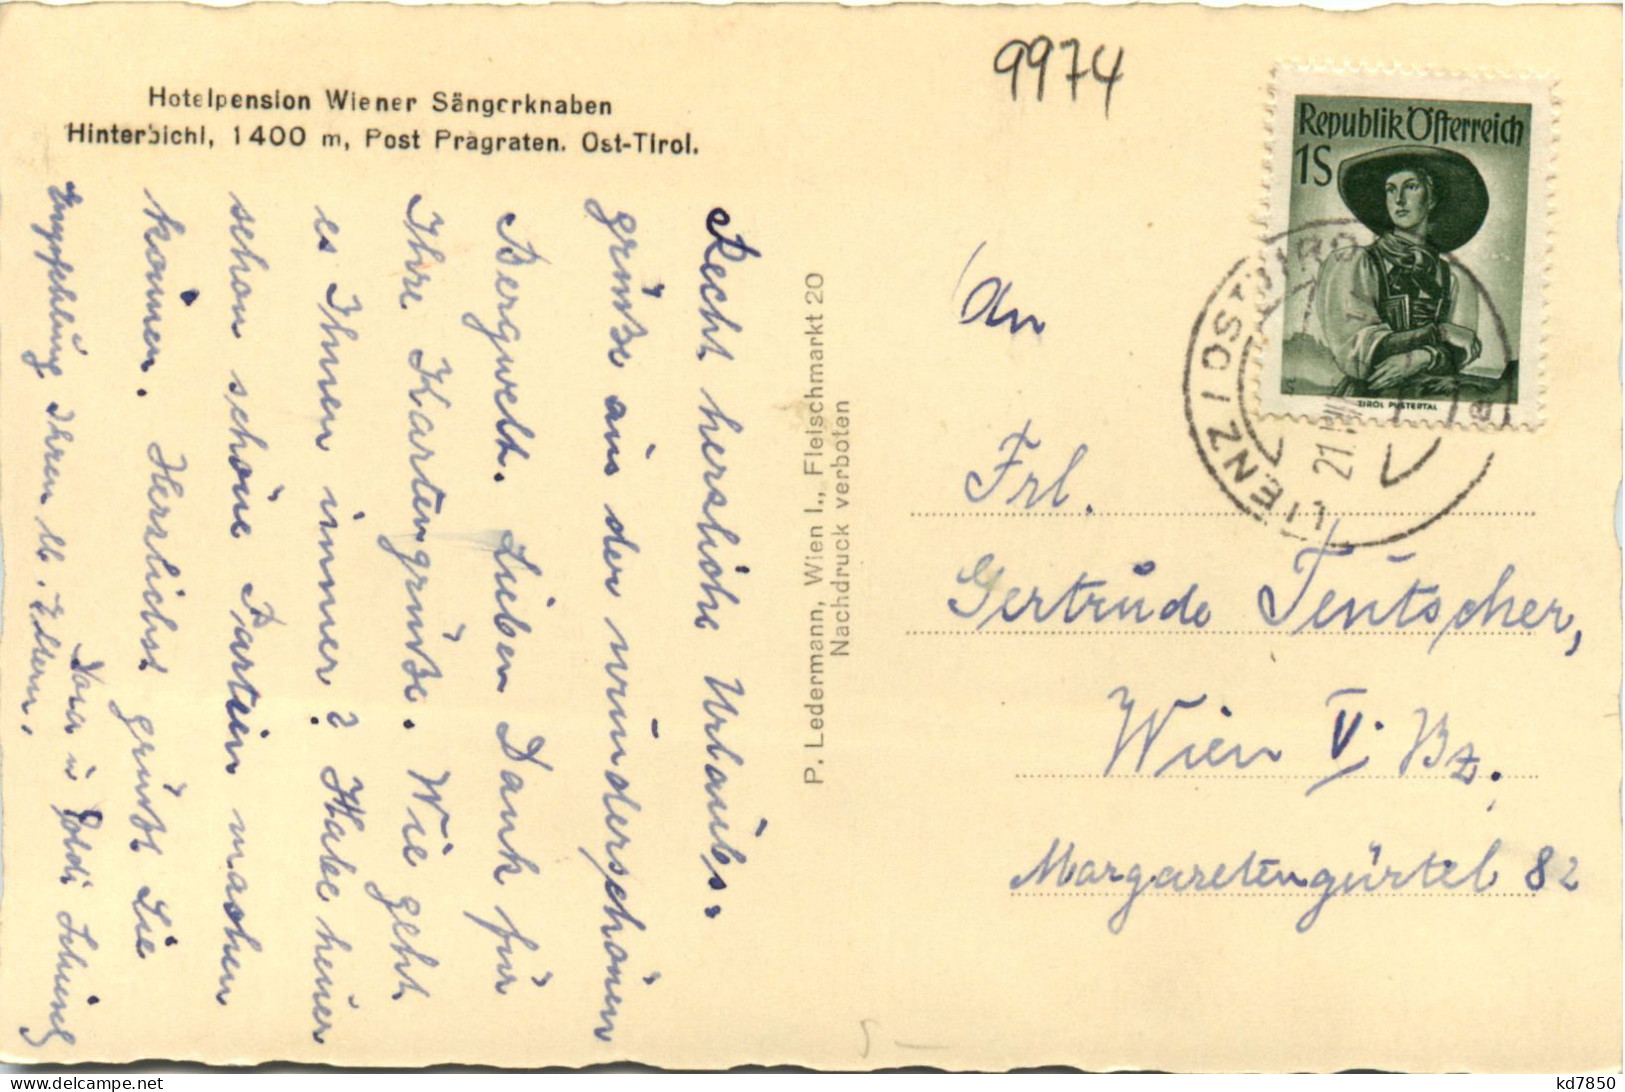 Hotelpension Wiener Sängerknaben
Hinterbichl, 1400 m, Post Prägraten. Ost-Tirol.
Recht herzliche Urlaubs-
grüße aus der wunderschönen
Bergwelt. Lieben Dank für
Ihre Kartengrüße. Wie geht
es Ihnen immer? Habe heuer
schon schöne Partien machen
können. Herzlichst grüßt Sie
Empfehlung Ihren lb. Eltern.
u. Poldi
P. Ledermann, Wien I., Fleischmarkt 20
Nachdruck verboten
9974
Republik Österreich
1S
TIROL PUSTERTAL
LIENZ 1 OSTTIROL
21.
a
An
Frl.
Gertrude Teutscher,
Wien V. Bz.
Margaretengürtel 82
5 —
kd7850